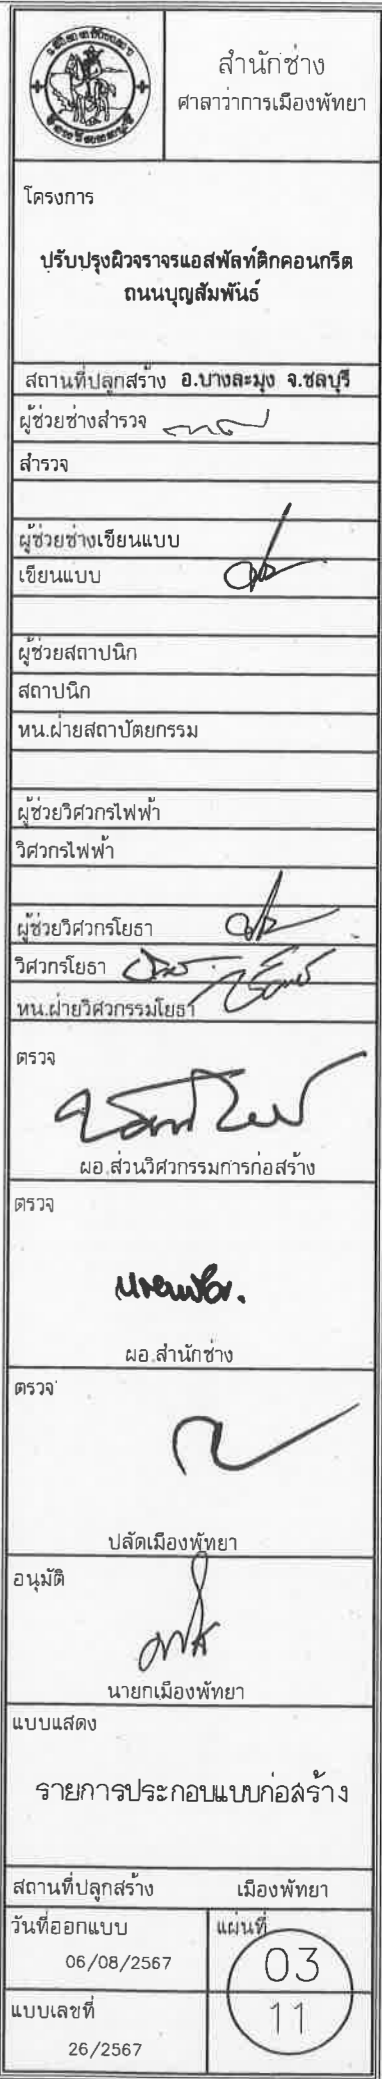 สำนักช่าง
ศาลาว่าการเมืองพัทยา
โครงการ
ปรับปรุงผิวจราจรแอสฟัลท์ติกคอนกรีต
ถนนบุญสัมพันธ์
สถานที่ปลูกสร้าง อ.บางละมุง จ.ชลบุรี
ผู้ช่วยช่างสำรวจ
สำรวจ
ผู้ช่วยช่างเขียนแบบ
เขียนแบบ
ผู้ช่วยสถาปนิก
สถาปนิก
หน.ฝ่ายสถาปัตยกรรม
ผู้ช่วยวิศวกรไฟฟ้า
วิศวกรไฟฟ้า
ผู้ช่วยวิศวกรโยธา
วิศวกรโยธา
หน.ฝ่ายวิศวกรรมโยธา
ตรวจ
ผอ.ส่วนวิศวกรรมการก่อสร้าง
ตรวจ
ผอ.สำนักช่าง
ตรวจ
ปลัดเมืองพัทยา
อนุมัติ
นายกเมืองพัทยา
แบบแสดง
รายการประกอบแบบก่อสร้าง
สถานที่ปลูกสร้าง เมืองพัทยา
วันที่ออกแบบ
06/08/2567
แผ่นที่
03
11
แบบเลขที่
26/2567